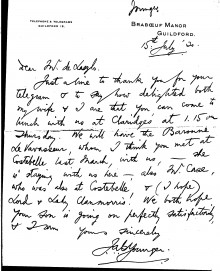 Younger
TELEPHONE & TELEGRAMS
GUILDFORD 15.
BRABŒUF MANOR
GUILDFORD.
15th July '20.
Dear Mr de Laszlo.
Just a line to thank you for your
telegram & to say how delighted both
my wife & I are that you can come to
lunch with us at Claridges at 1.15 on
Thursday. We will have the Baronne
Le Vavasseur, whom I think you met at
Costebelle last March, with us, — she
is staying with us here — also Mr Case
who was also at Costebelle, & (I hope)
Lord & Lady Clanmorris! We both hope
your son is going on perfectly satisfactorily
& I am Yours sincerely
Younger.